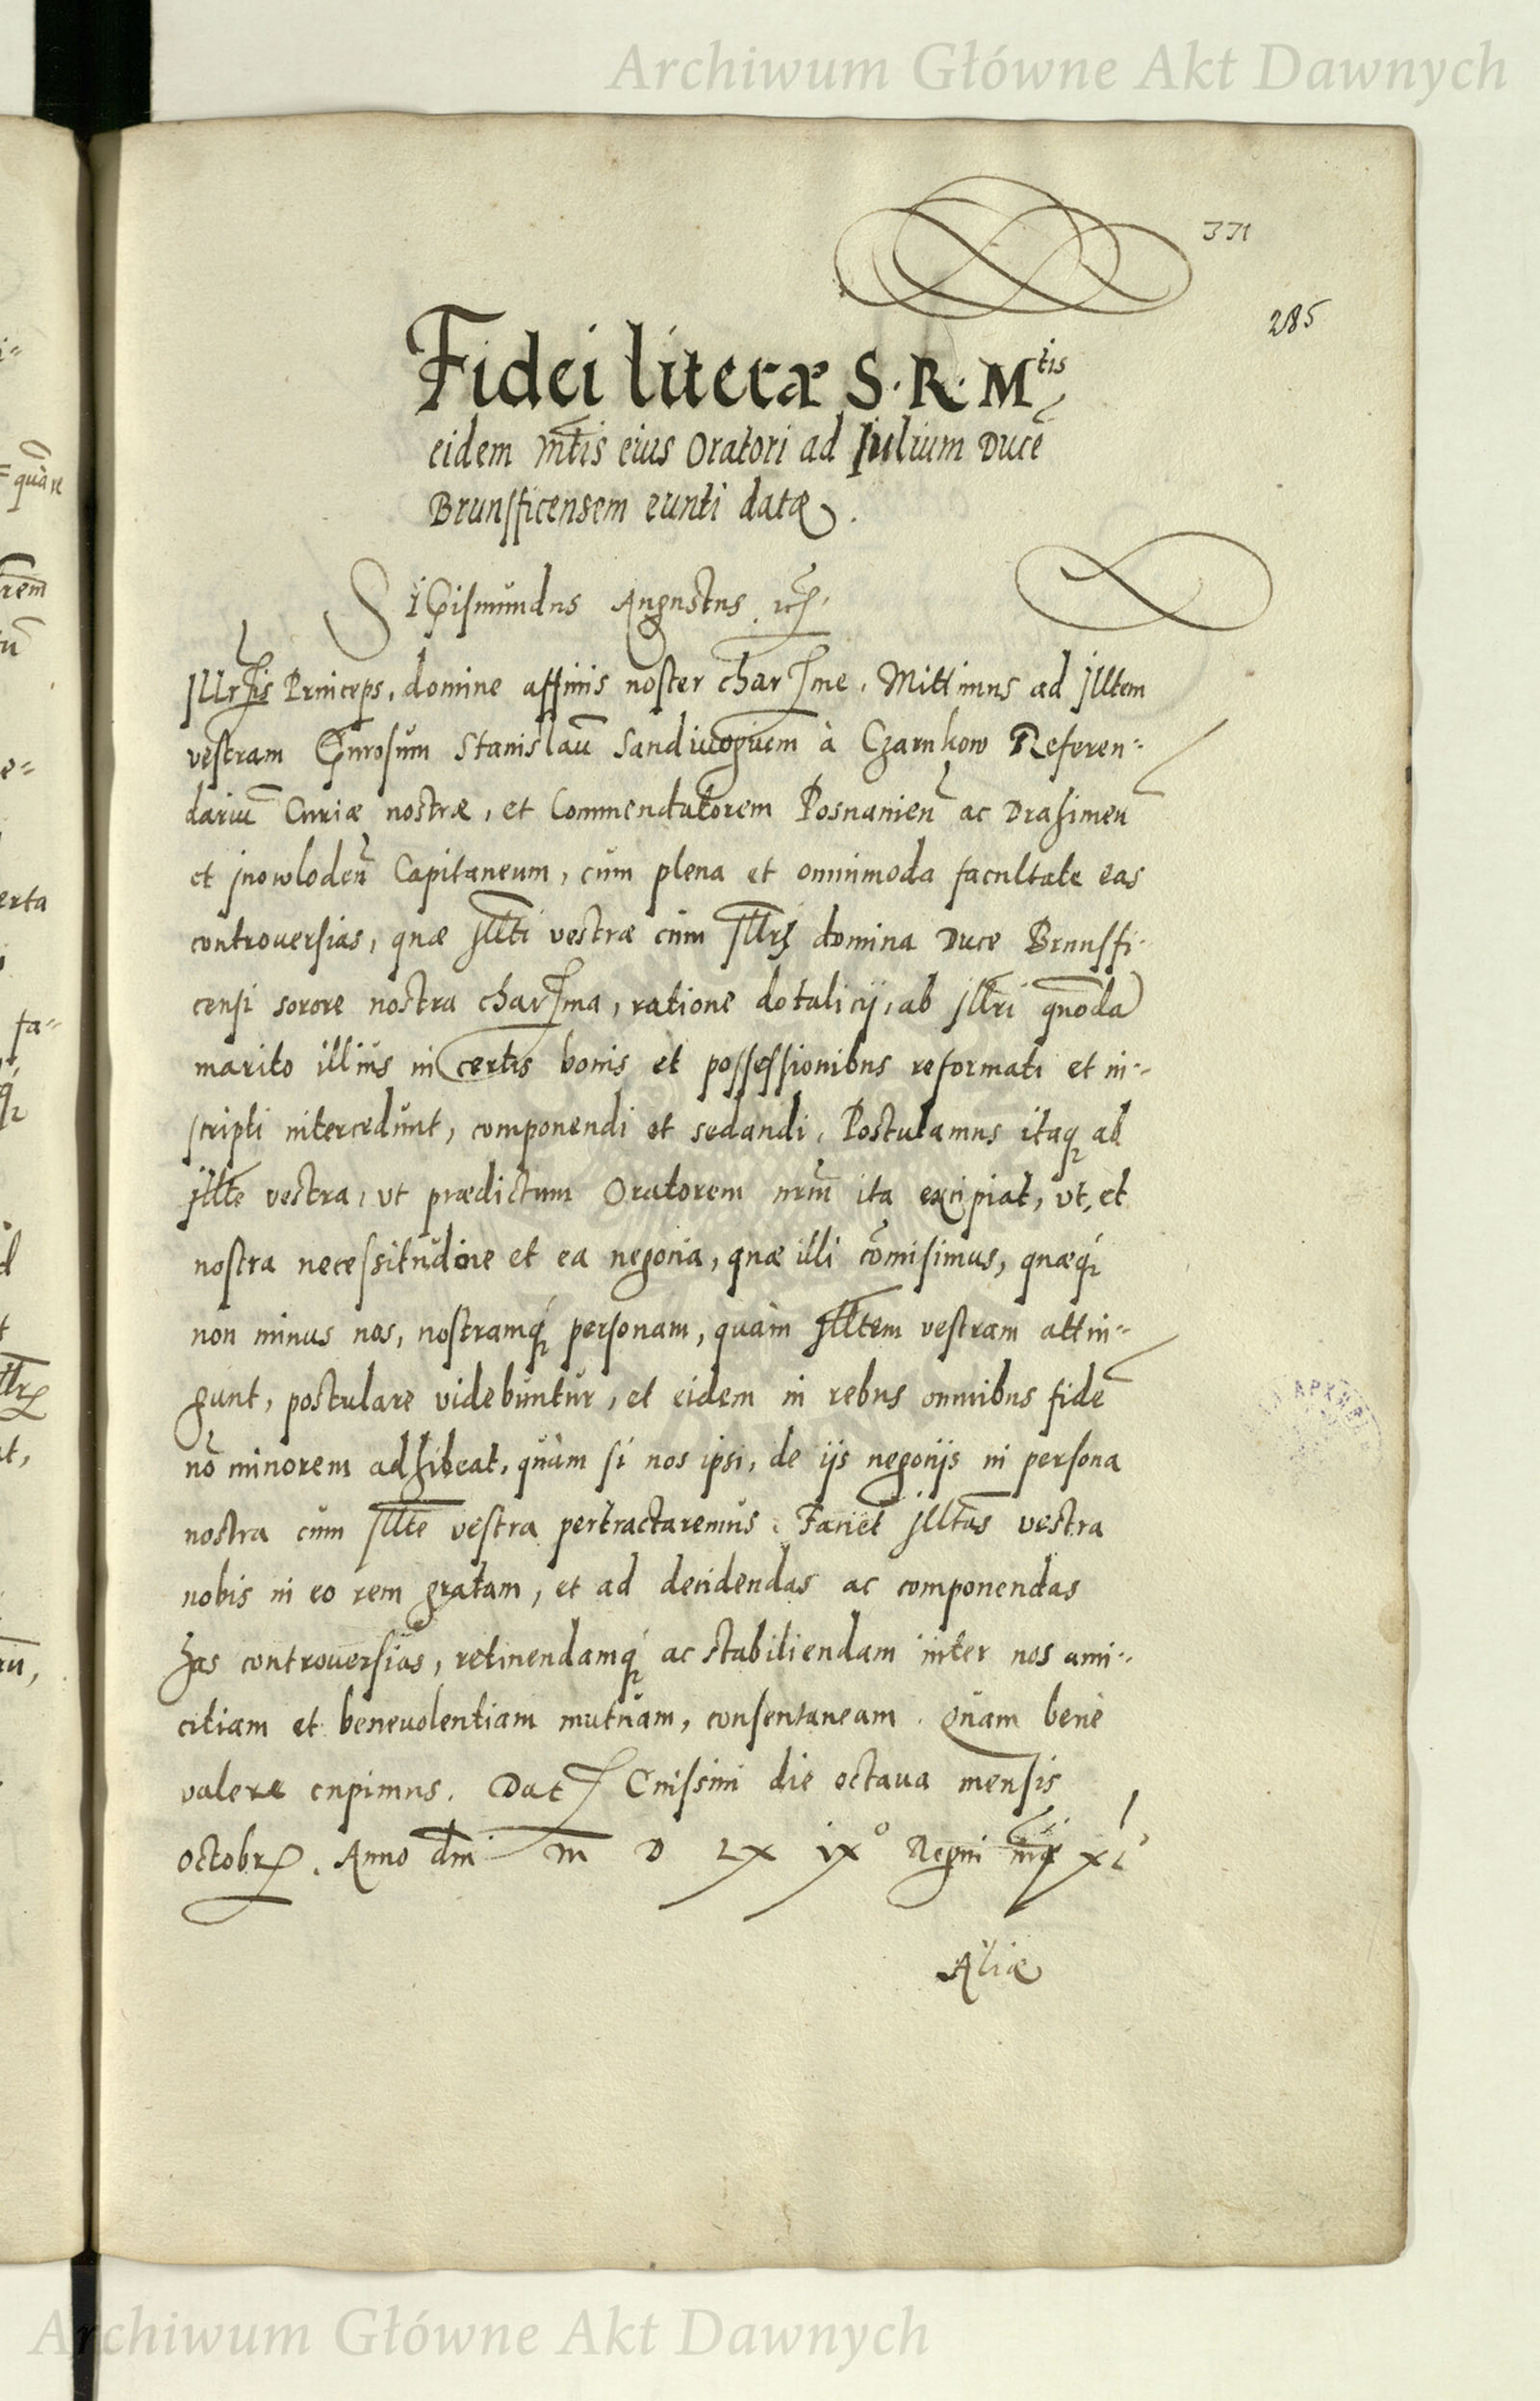 Archiwum Główne Akt Dawnych
371
285
Fidei literæ S. R. M^tis
eidem Mtis eius Oratori ad Iulium Ducē
Brunsficensem eunti datæ.
SIGismundus Augustus rēx.
Illrssis Princeps, domine affinis noster charssme. Mittimus ad Illtem
vestram Gnrosum Stanislaū Sandiuogium à Czarnkow Referen=
dariū Curiæ nostræ, et Commendatorem Posnanień ac Drahimeń
et Jnowlodeń Capitaneum, cum plena et omnimoda facultate eas
controuersias, quæ Illti vestræ cum Illrj domina Duce Brunsfi=
censi sorore nostra charssma, ratione dotalicij, ab Illri quōda
marito illius in certis bonis et possessionibus reformati et in=
scripti intercedunt, componendi et sedandi. Postulamus itaq; ab
Illte vestra, vt prædictum Oratorem nrm̄ ita excipiat, vt, et
nostra necessitudine et ea negocia, quæ illi cōmisimus, quæq;
non minus nos, nostramq; personam, quàm Illtem vestram attin=
gunt, postulare videbuntur, et eidem in rebus omnibus fidē
nō minorem adhibeat, quàm si nos ipsi, de ijs negocijs in persona
nostra cum Illte vestra pertractaremus. Faciet Illtas vestra
nobis in eo rem gratam, et ad decidendas ac componendas
has controuersias, retinendamq; ac stabiliendam inter nos ami=
citiam et beneuolentiam mutuam, consentaneam. Quam bene
valere cupimus. Dat Cnissini die octaua mensis
octobr. Anno dnī M D LX ix° Regni nrī xl
Aliæ
Archiwum Główne Akt Dawnych